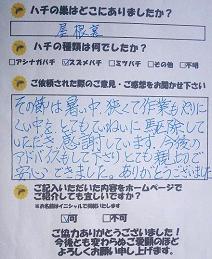 ハチの巣はどこにありましたか?
屋根裏
ハチの種類は何でしたか?
□アシナガバチ ☑スズメバチ □ミツバチ □その他 □不明
ご依頼された際のご意見・ご感想をお聞かせ下さい
その節は暑い中、狭くて作業もやりに
くい中をとてもていねいに駆除して
いただき、感謝しています。今後の
アドバイスもして下さりとても頼もしく
安心できました。ありがとうございました
ご記入いただいた内容をホームページで
ご紹介しても宜しいですか?
※お名前はイニシャルで掲載いたします
☑可 □不可
ご協力ありがとうございました!
今後とも変わらぬご愛顧のほど
よろしくお願い申し上げます。